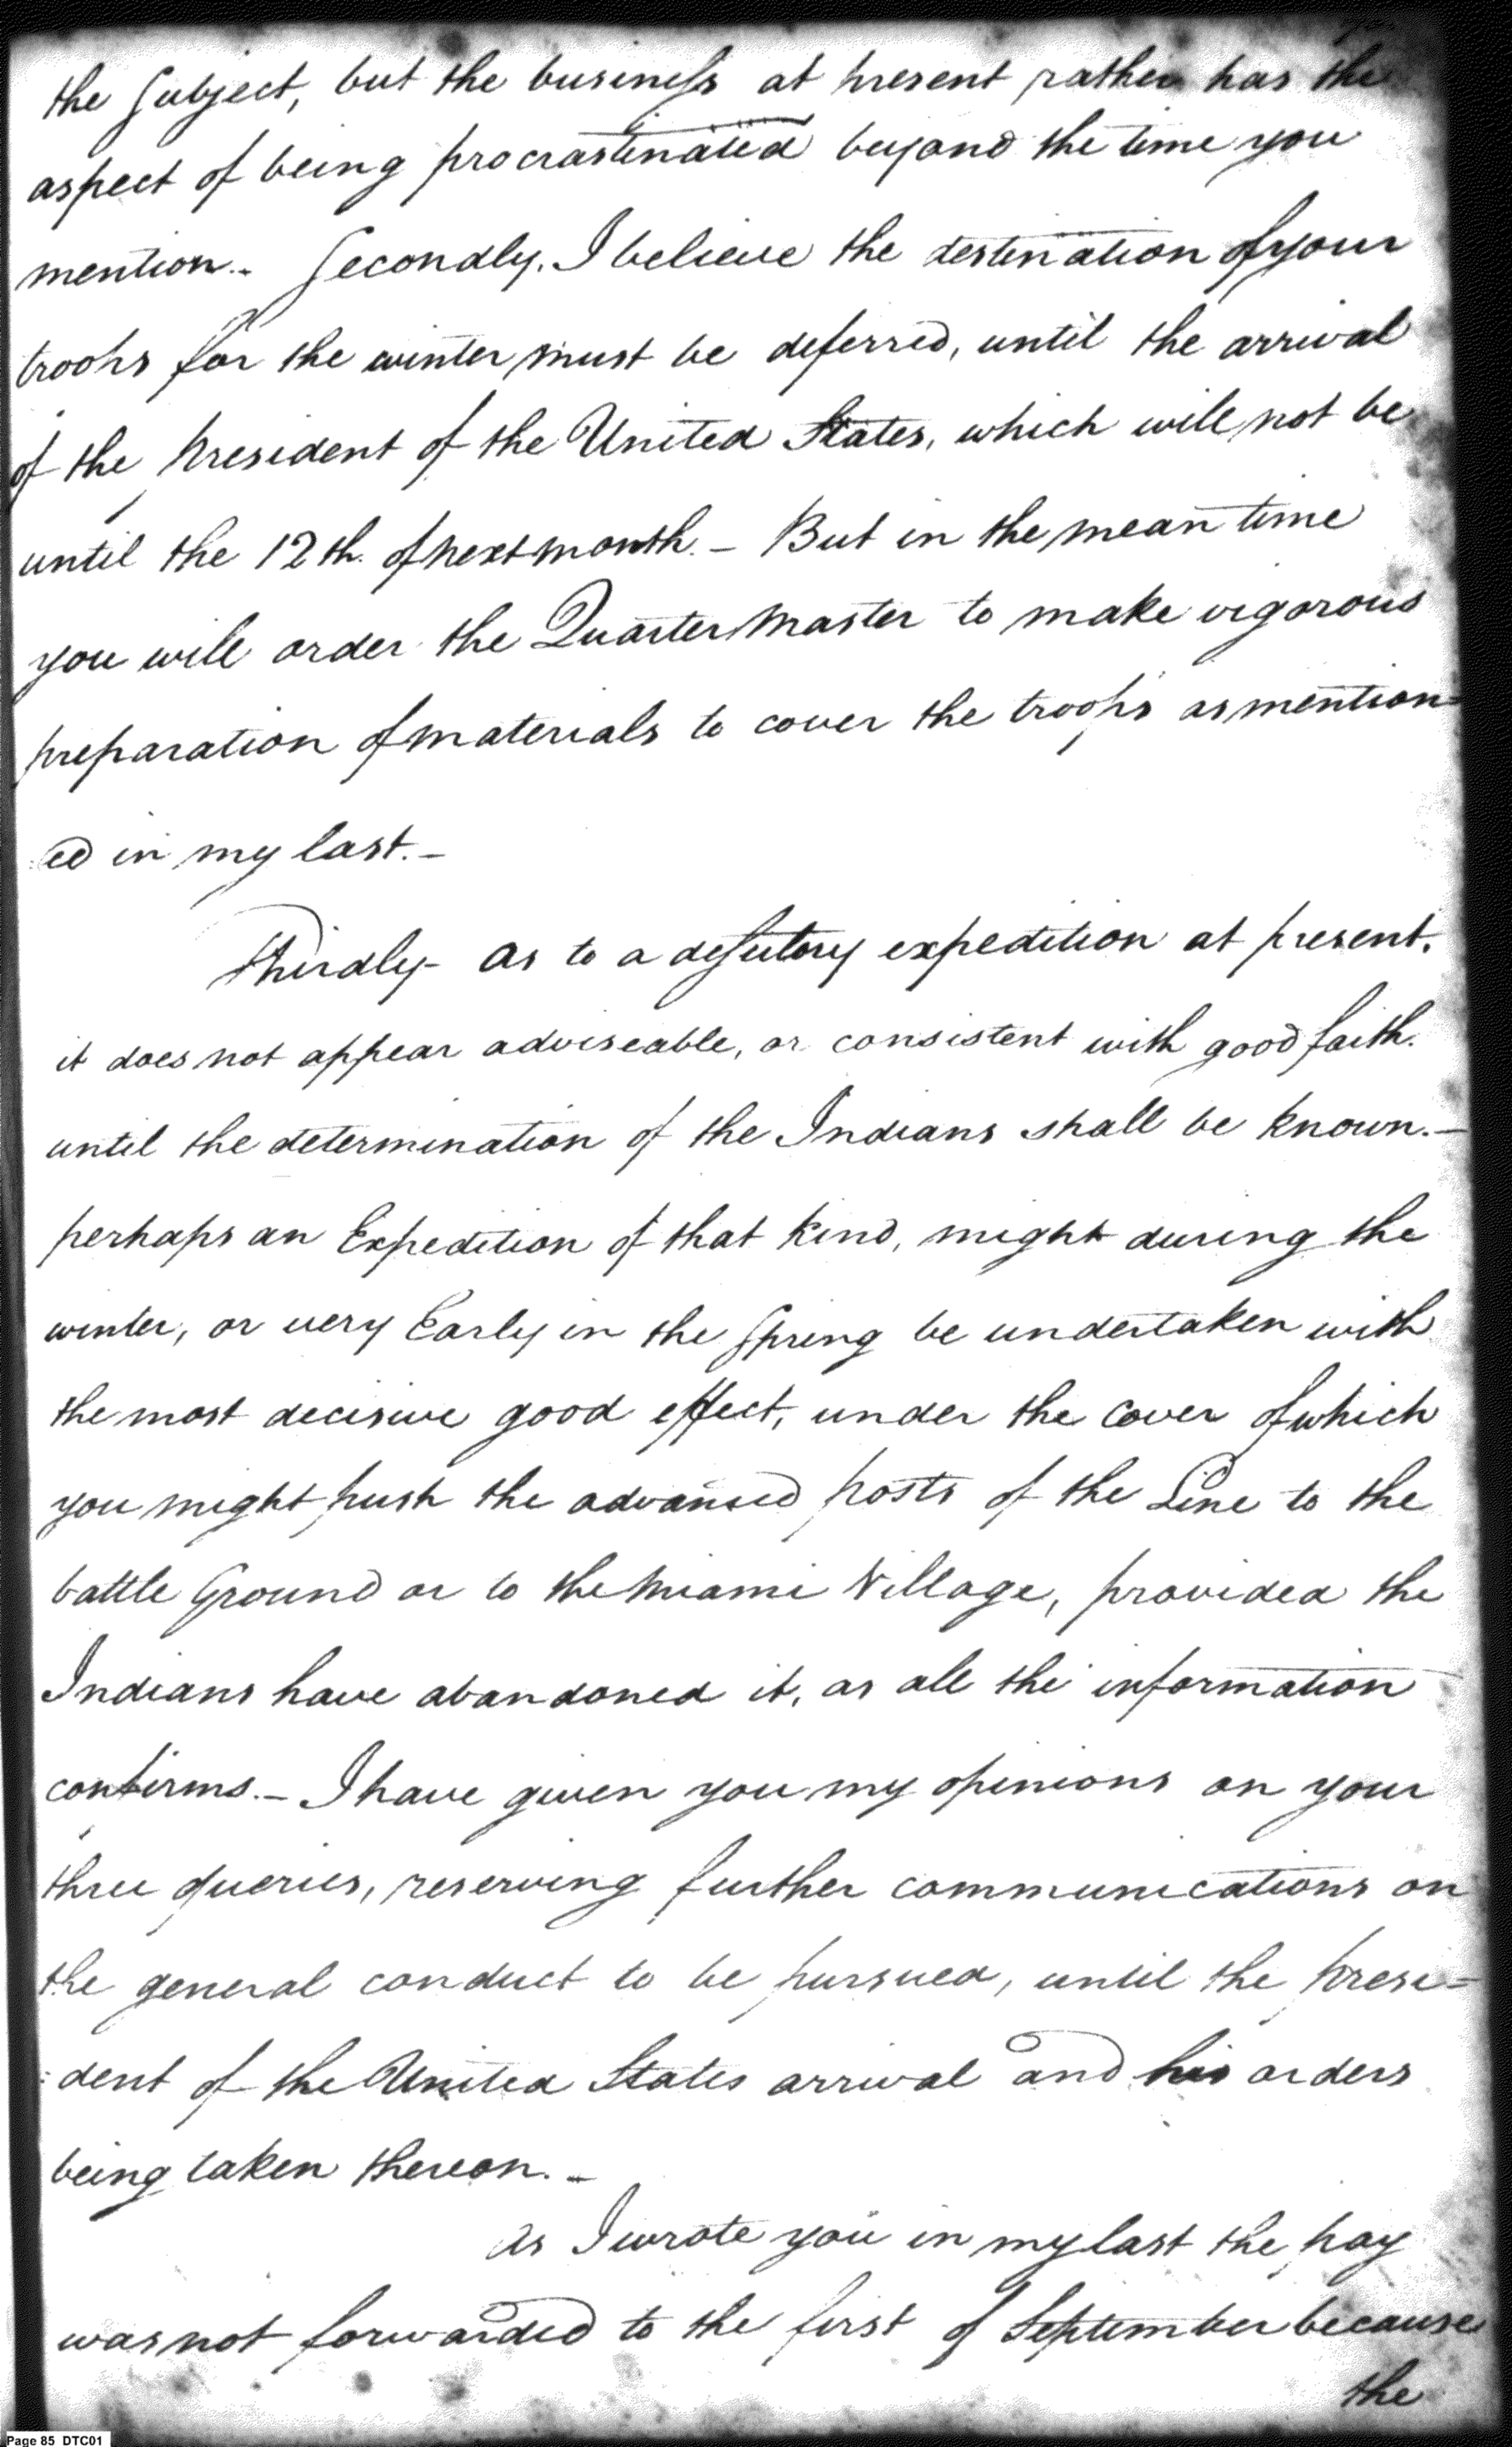 the Subject, but the business at present rather has the
aspect of being procrastinated beyond the time you
mention.- Secondly. I believe the destination of your
troops for the winter must be deferred, until the arrival
of the President of the United States, which will not be
until the 12th. of next month.- But in the mean time
you will order the Quarter Master to make vigorous
preparation of materials to cover the troops as mention=
:ed in my last.-
Thirdly- as to a desultory expedition at present.
it does not appear adviseable, or consistent with good faith.
until the determination of the Indians shall be known.-
perhaps an Expedition of that kind, might during the
winter, or very Early in the Spring be undertaken with
the most decisive good effect, under the cover of which
you might push the advanced posts of the Line to the
battle Ground or to the Miami Village, provided the
Indians have abandoned it, as all the information
confirms.- I have given you my opinions on your
three queries, reserving further communications on
the general conduct to be pursued, until the Presi=
:dent of the United States arrival and his orders
being taken thereon.-
As I wrote you in my last the pay
was not forwarded to the first of September because
the
Page 85 DTC01